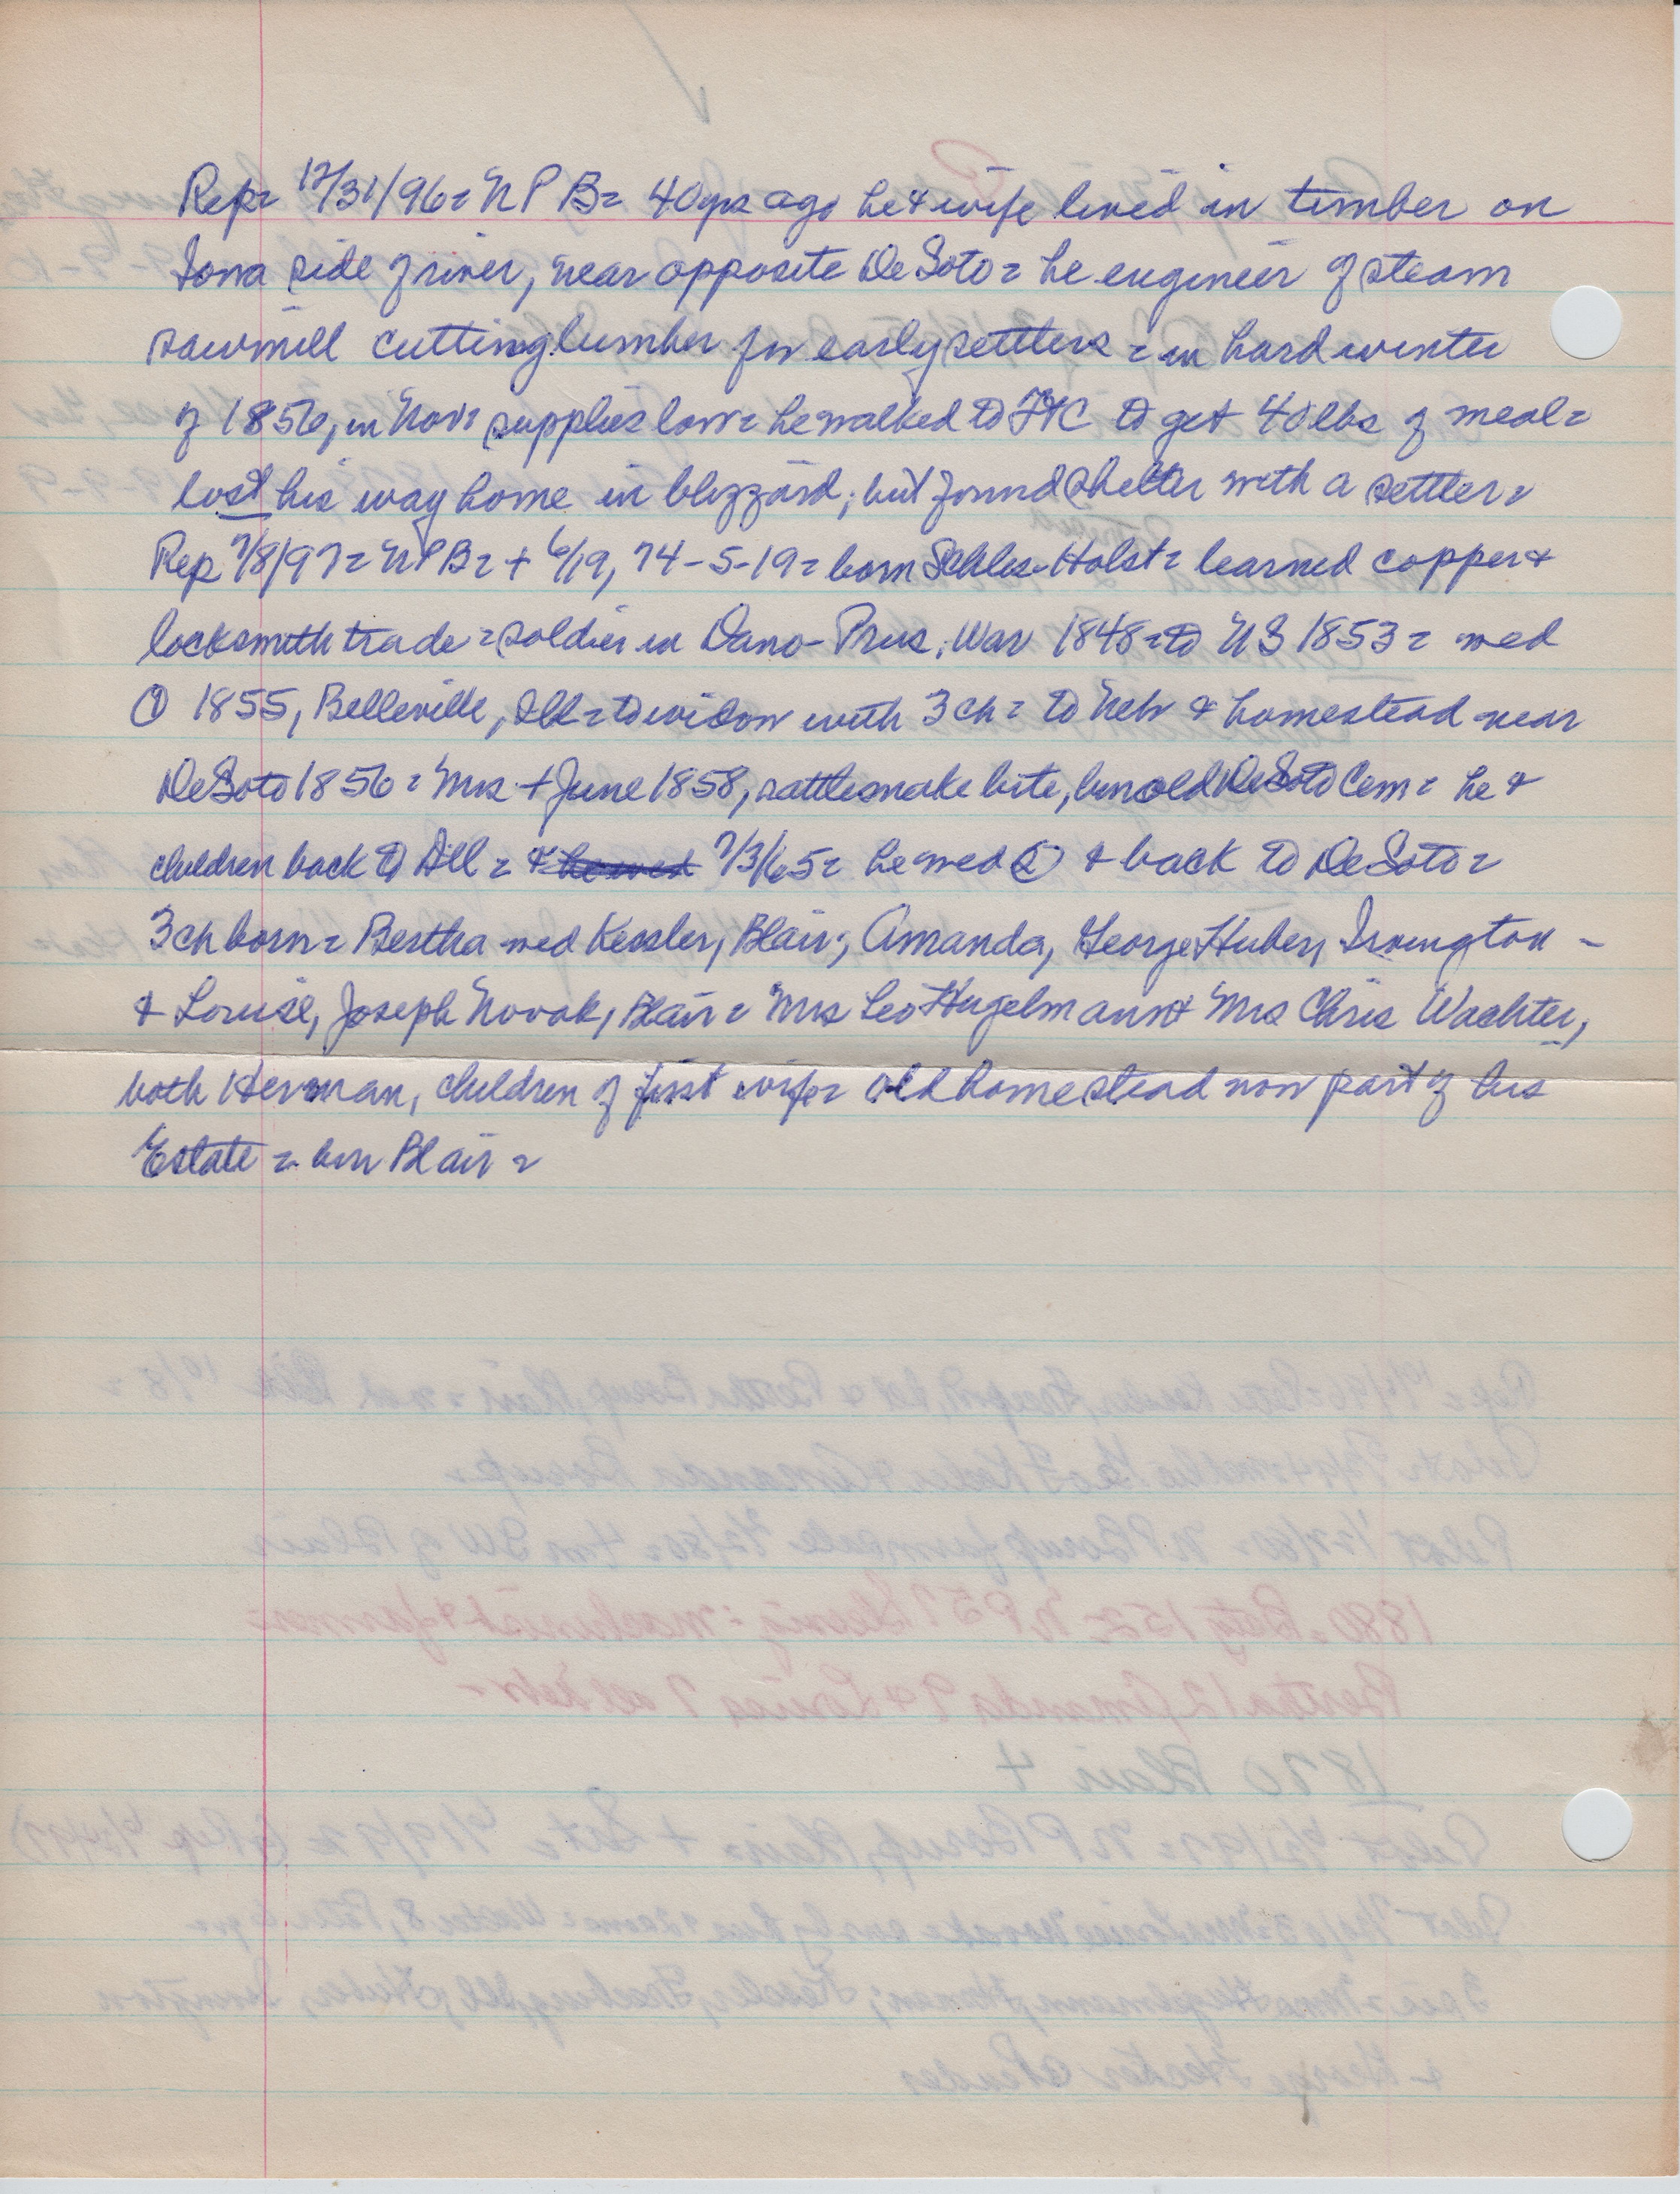 Rep= 12/31/96= N P B= 40 yrs ago he & wife lived in timber on
Iowa side of river, near opposite De Soto = he engineer of steam
sawmill cutting lumber for early settlers = in hard winter
of 1856, in Nov= supplies low= he walked to FtC to get 40 lbs of meal=
lost his way home in blizzard, but found shelter with a settler=
Rep 7/8/97= N P B= + 6/19, 74-5-19= born Schles-Holst= learned copper &
locksmith trade = soldier in Dano-Prus. War 1848= to US 1853= med
① 1855, Belleville, Ill= to widow with 3 ch= to Neb & homestead near
DeSoto 1856= Mrs + June 1858, rattlesnake bite, bur old DeSoto Cem= he &
children back to Ill = & he med 7/3/65= he med ② & back to DeSoto=
3 ch born= Bertha med Kessler, Blair; Amanda, George Huber, Irvington -
& Louise, Joseph Novak, Blair= Mrs Leo Hugelmann & Mrs Chris Wachter,
both Herman, children of first wife= old homestead now part of his
Estate = bur Blair=